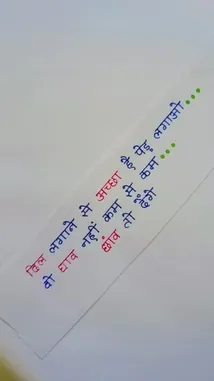 दिल लगाने से अच्छा है पेड़ लगाओ...
वो घाव नहीं कम से कम...
छांव तो देंगे